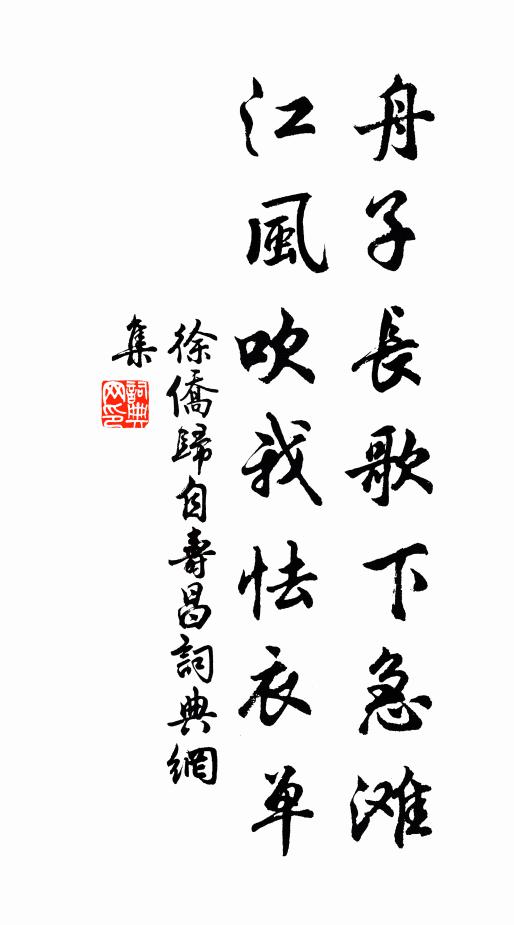 舟子長歌下急滩
江風吹我怯衣单
徐僑歸自壽昌詞典網
集
詞典网印